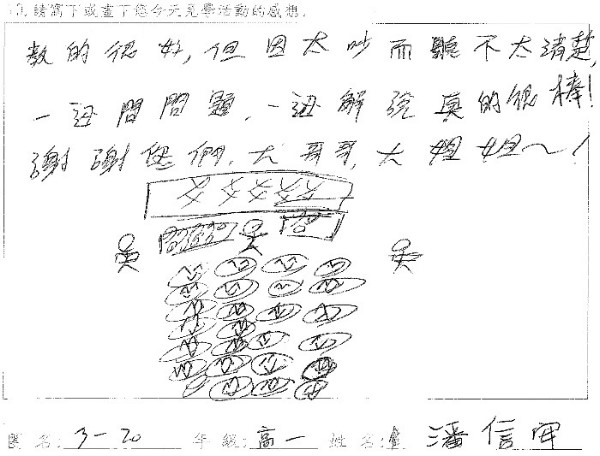 10.請寫下或畫下您今天見學活動的感想.
教的很好,但因太吵而聽不太清楚,
一边問問題,一边解說真的很棒!
謝謝您們.大哥哥,大姐姐~!
文文文文文
團名:3-20 年級:高一 姓名:潘信安